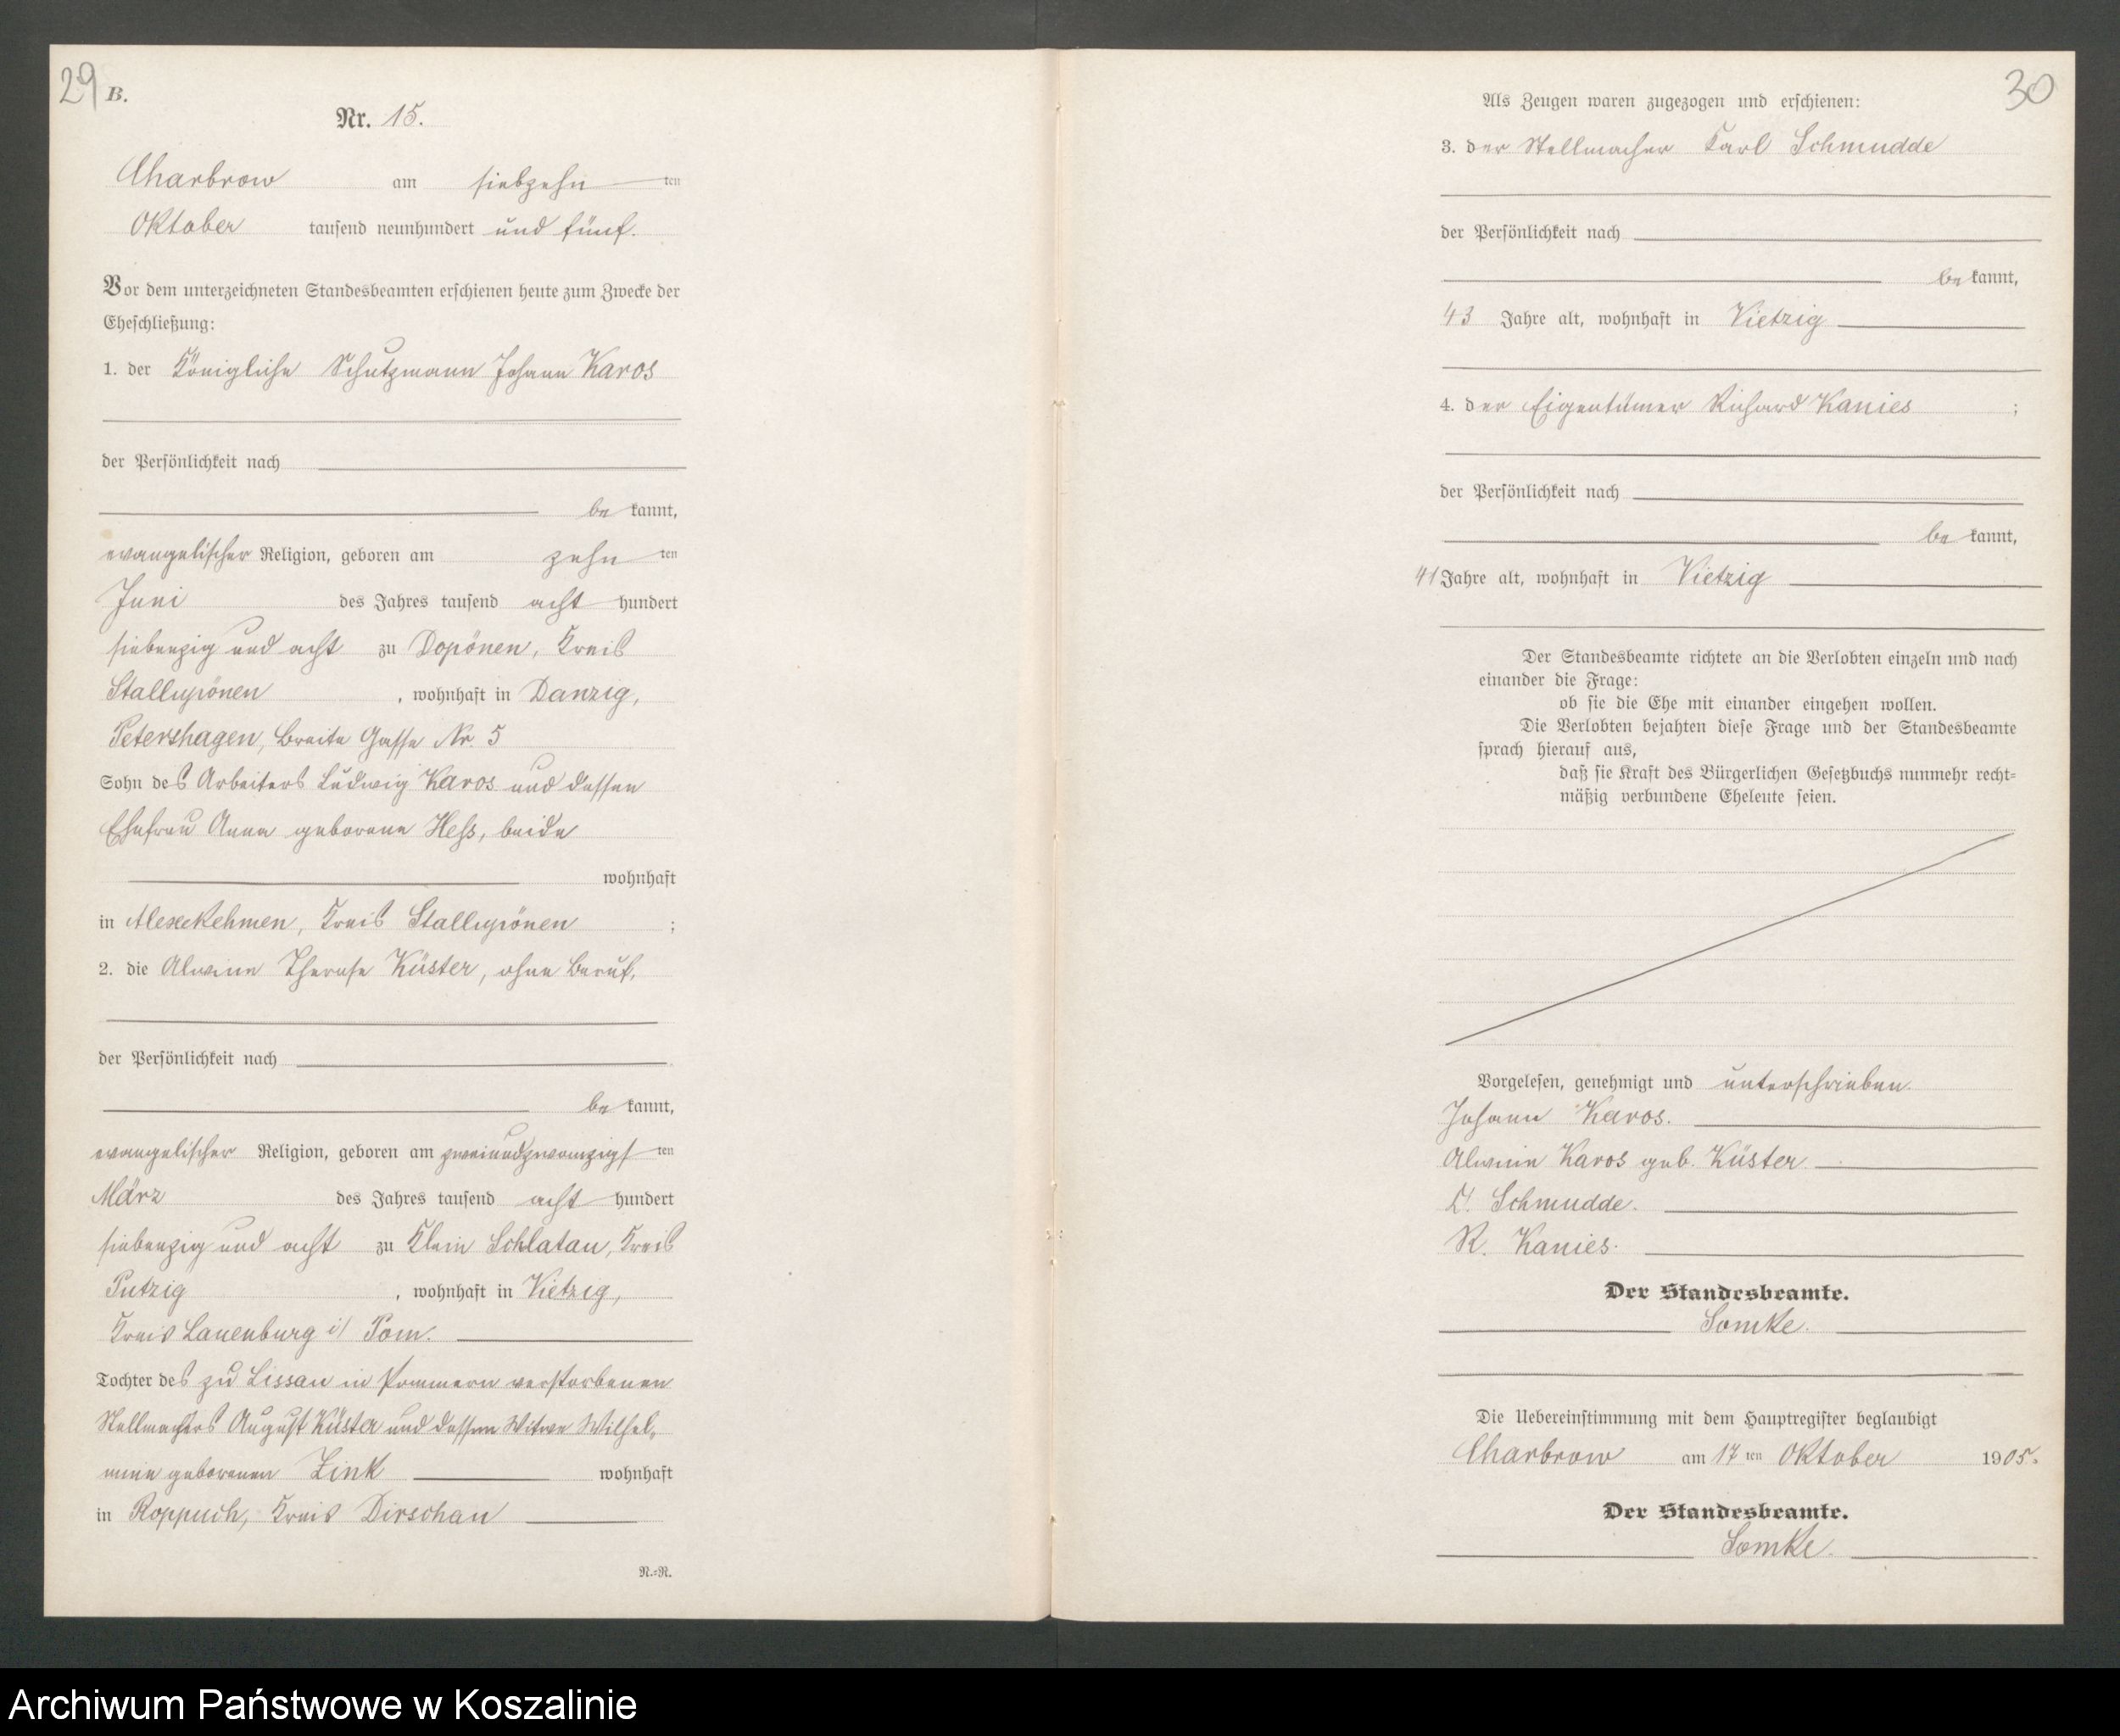 29 B.
Nr. 15.
Charbrow am siebzehn ten
Oktober tausend neunhundert und fünf.
Vor dem unterzeichneten Standesbeamten erschienen heute zum Zwecke der
Eheschließung:
1. der Königliche Schutzmann Johann Karos
der Persönlichkeit nach
be kannt,
evangelischer Religion, geboren am zehn ten
Juni des Jahres tausend acht hundert
siebenzig und acht zu Dopönen, Kreis
Stallupönen , wohnhaft in Danzig,
Petershagen, Breite Gasse Nr. 5
Sohn des Arbeiters Ludwig Karos und dessen
Ehefrau Anna geborene Heß, beide
wohnhaft
in Alexkehmen, Kreis Stallupönen ;
2. die Alwine Therese Küster, ohne Beruf,
der Persönlichkeit nach
be kannt,
evangelischer Religion, geboren am zweiundzwanzigs ten
März des Jahres tausend acht hundert
siebenzig und acht zu Klein Schlatau, Kreis
Putzig , wohnhaft in Vietzig,
Kreis Lauenburg i/ Pom.
Tochter des zu Lissau in Pommern verstorbenen
Stellmachers August Küster und dessen Witwe Wilhel-
mine geborenen Zink wohnhaft
in Roppuch, Kreis Dirschau
N.=N.
30
Als Zeugen waren zugezogen und erschienen:
3. der Stellmacher Karl Schmudde
der Persönlichkeit nach
be kannt,
43 Jahre alt, wohnhaft in Vietzig
4. der Eigentümer Richard Kanies ;
der Persönlichkeit nach
be kannt,
41 Jahre alt, wohnhaft in Vietzig
Der Standesbeamte richtete an die Verlobten einzeln und nach
einander die Frage:
ob sie die Ehe mit einander eingehen wollen.
Die Verlobten bejahten diese Frage und der Standesbeamte
sprach hierauf aus,
daß sie kraft des Bürgerlichen Gesetzbuchs nunmehr recht=
mäßig verbundene Eheleute seien.
Vorgelesen, genehmigt und unterschrieben.
Johann Karos.
Alwine Karos geb. Küster
K. Schmudde.
R. Kanies.
Der Standesbeamte.
Somke.
Die Uebereinstimmung mit dem Hauptregister beglaubigt
Charbrow am 17 ten Oktober 1905.
Der Standesbeamte.
Somke.
Archiwum Państwowe w Koszalinie